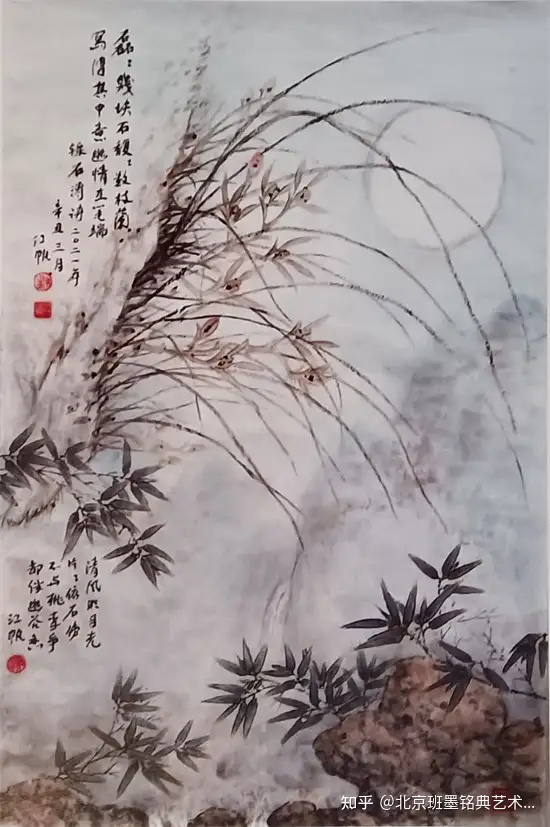 磊〻幾块石馥〻数枝蘭
写得其中意幽情在笔端
石涛诗二〇二一年
辛丑三月
江帆
清风明月光
片〻依石傍
不与桃李争
却伴幽谷香
江帆
知乎 @北京班墨铭典艺术...